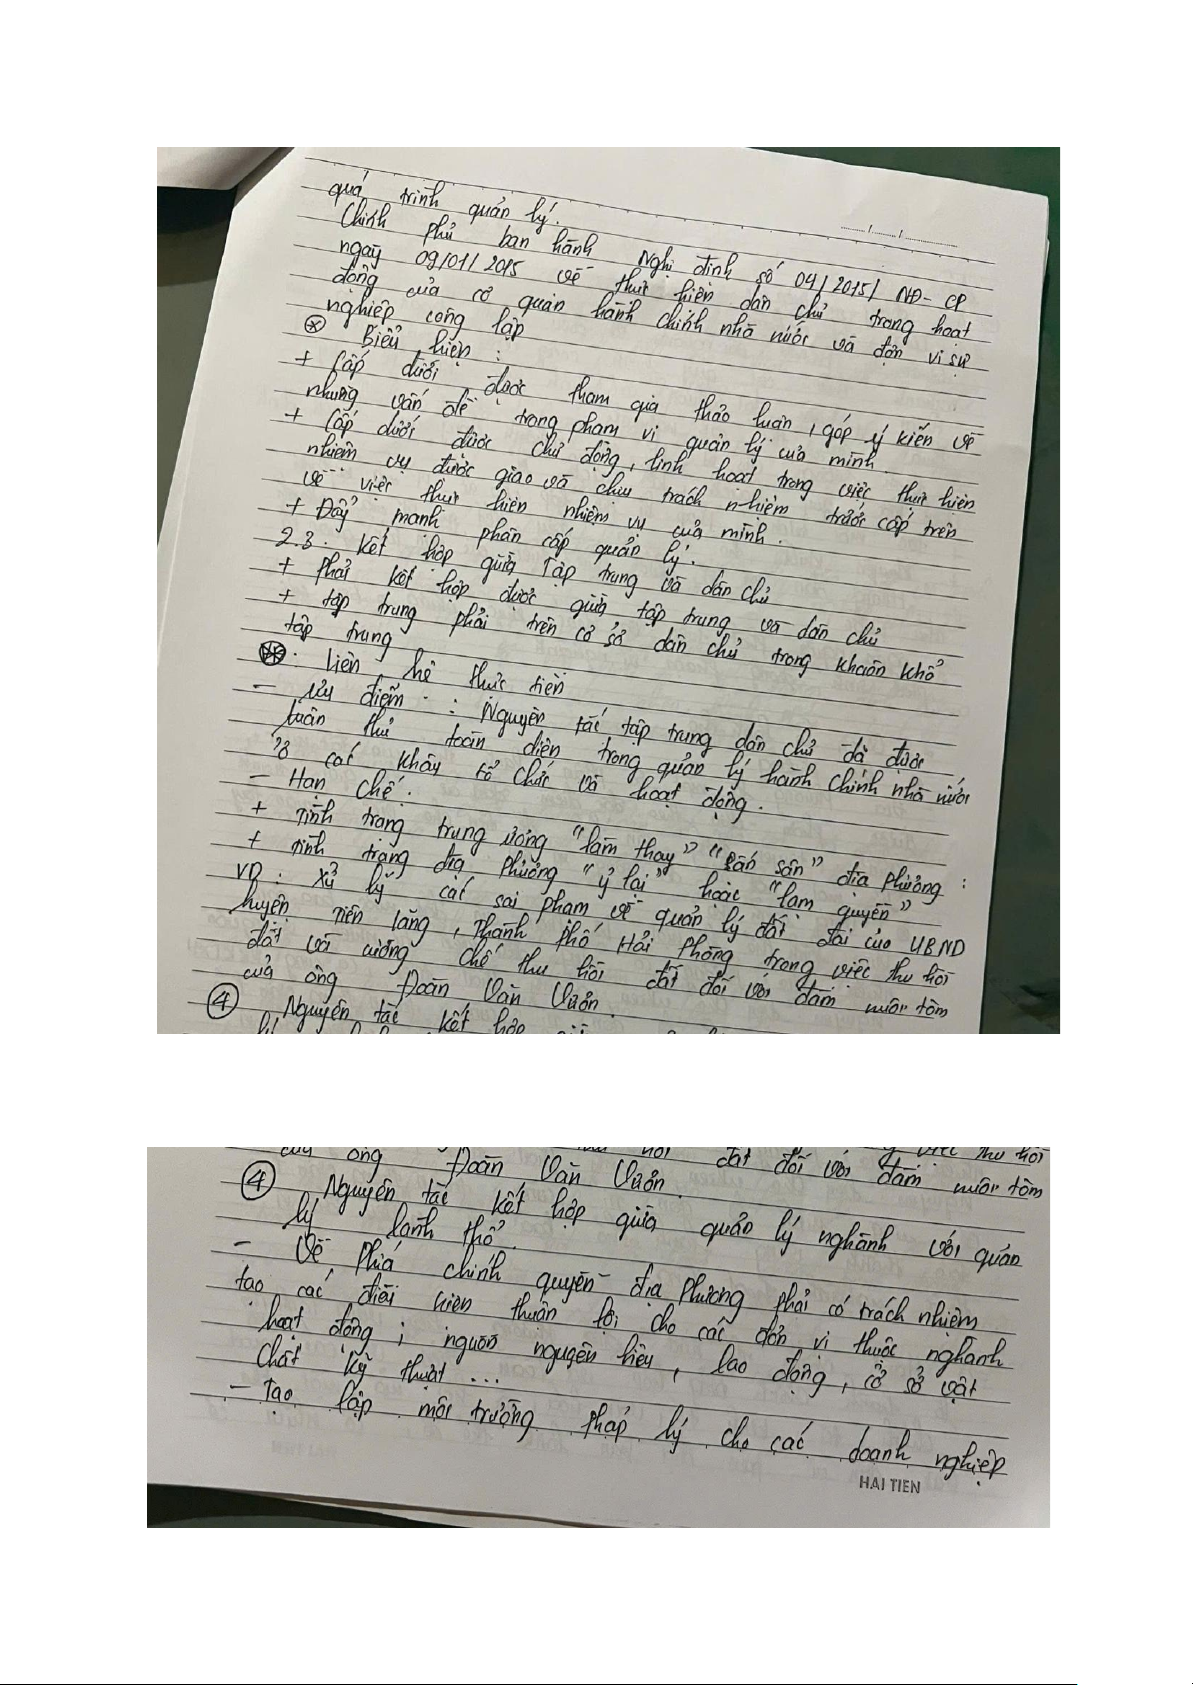 quá trình quản lý.
Chính phủ ban hành Nghị định số 04/2015/ NĐ-CP
ngày 09/01/2015 về thực hiện dân chủ trong hoạt
động của cơ quan hành chính nhà nước và đơn vị sự
nghiệp công lập
* Biểu hiện :
+ Cấp dưới được tham gia thảo luận, góp ý kiến về
những vấn đề trong phạm vi quản lý của mình.
+ Cấp dưới được chủ động, linh hoạt trong việc thực hiện
nhiệm vụ được giao và chịu trách nhiệm trước cấp trên
về việc thực hiện nhiệm vụ của mình.
+ Đẩy mạnh phân cấp quản lý.
2.3. Kết hợp giữa Tập trung và dân chủ
+ Phải kết hợp được giữa tập trung và dân chủ
+ tập trung phải trên cơ sở dân chủ trong khuôn khổ
tập trung
* : Liên hệ thực tiễn
- Ưu điểm : Nguyên tắc tập trung dân chủ đã được
tuân thủ toàn diện trong quản lý hành chính nhà nước
ở các khâu tổ chức và hoạt động.
- Hạn chế.
+ Tình trạng trung ương "làm thay" "lấn sân" địa phương :
+ Tình trạng địa phương "ỷ lại" hoặc "lạm quyền"
VD : Xử lý các sai phạm về quản lý đất đai của UBND
huyện Tiên Lãng, Thành Phố Hải Phòng trong việc thu hồi
đất và cưỡng chế thu hồi đất đối với đầm nuôi tôm
của ông Đoàn Văn Vươn.
④ Nguyên tắc kết hợp giữa
của ông Đoàn Văn Vươn. thu hồi đất đối với đầm nuôi tôm
④ Nguyên tắc kết hợp giữa quản lý nghành với quản
lý lãnh thổ.
- Về phía chính quyền địa phương phải có trách nhiệm
tạo các điều kiện thuận lợi cho các đơn vị thuộc nghành
hoạt động ; nguồn nguyên liệu, lao động, cơ sở vật
chất kỹ thuật ...
- Tạo lập môi trường pháp lý cho các doanh nghiệp
HAI TIEN